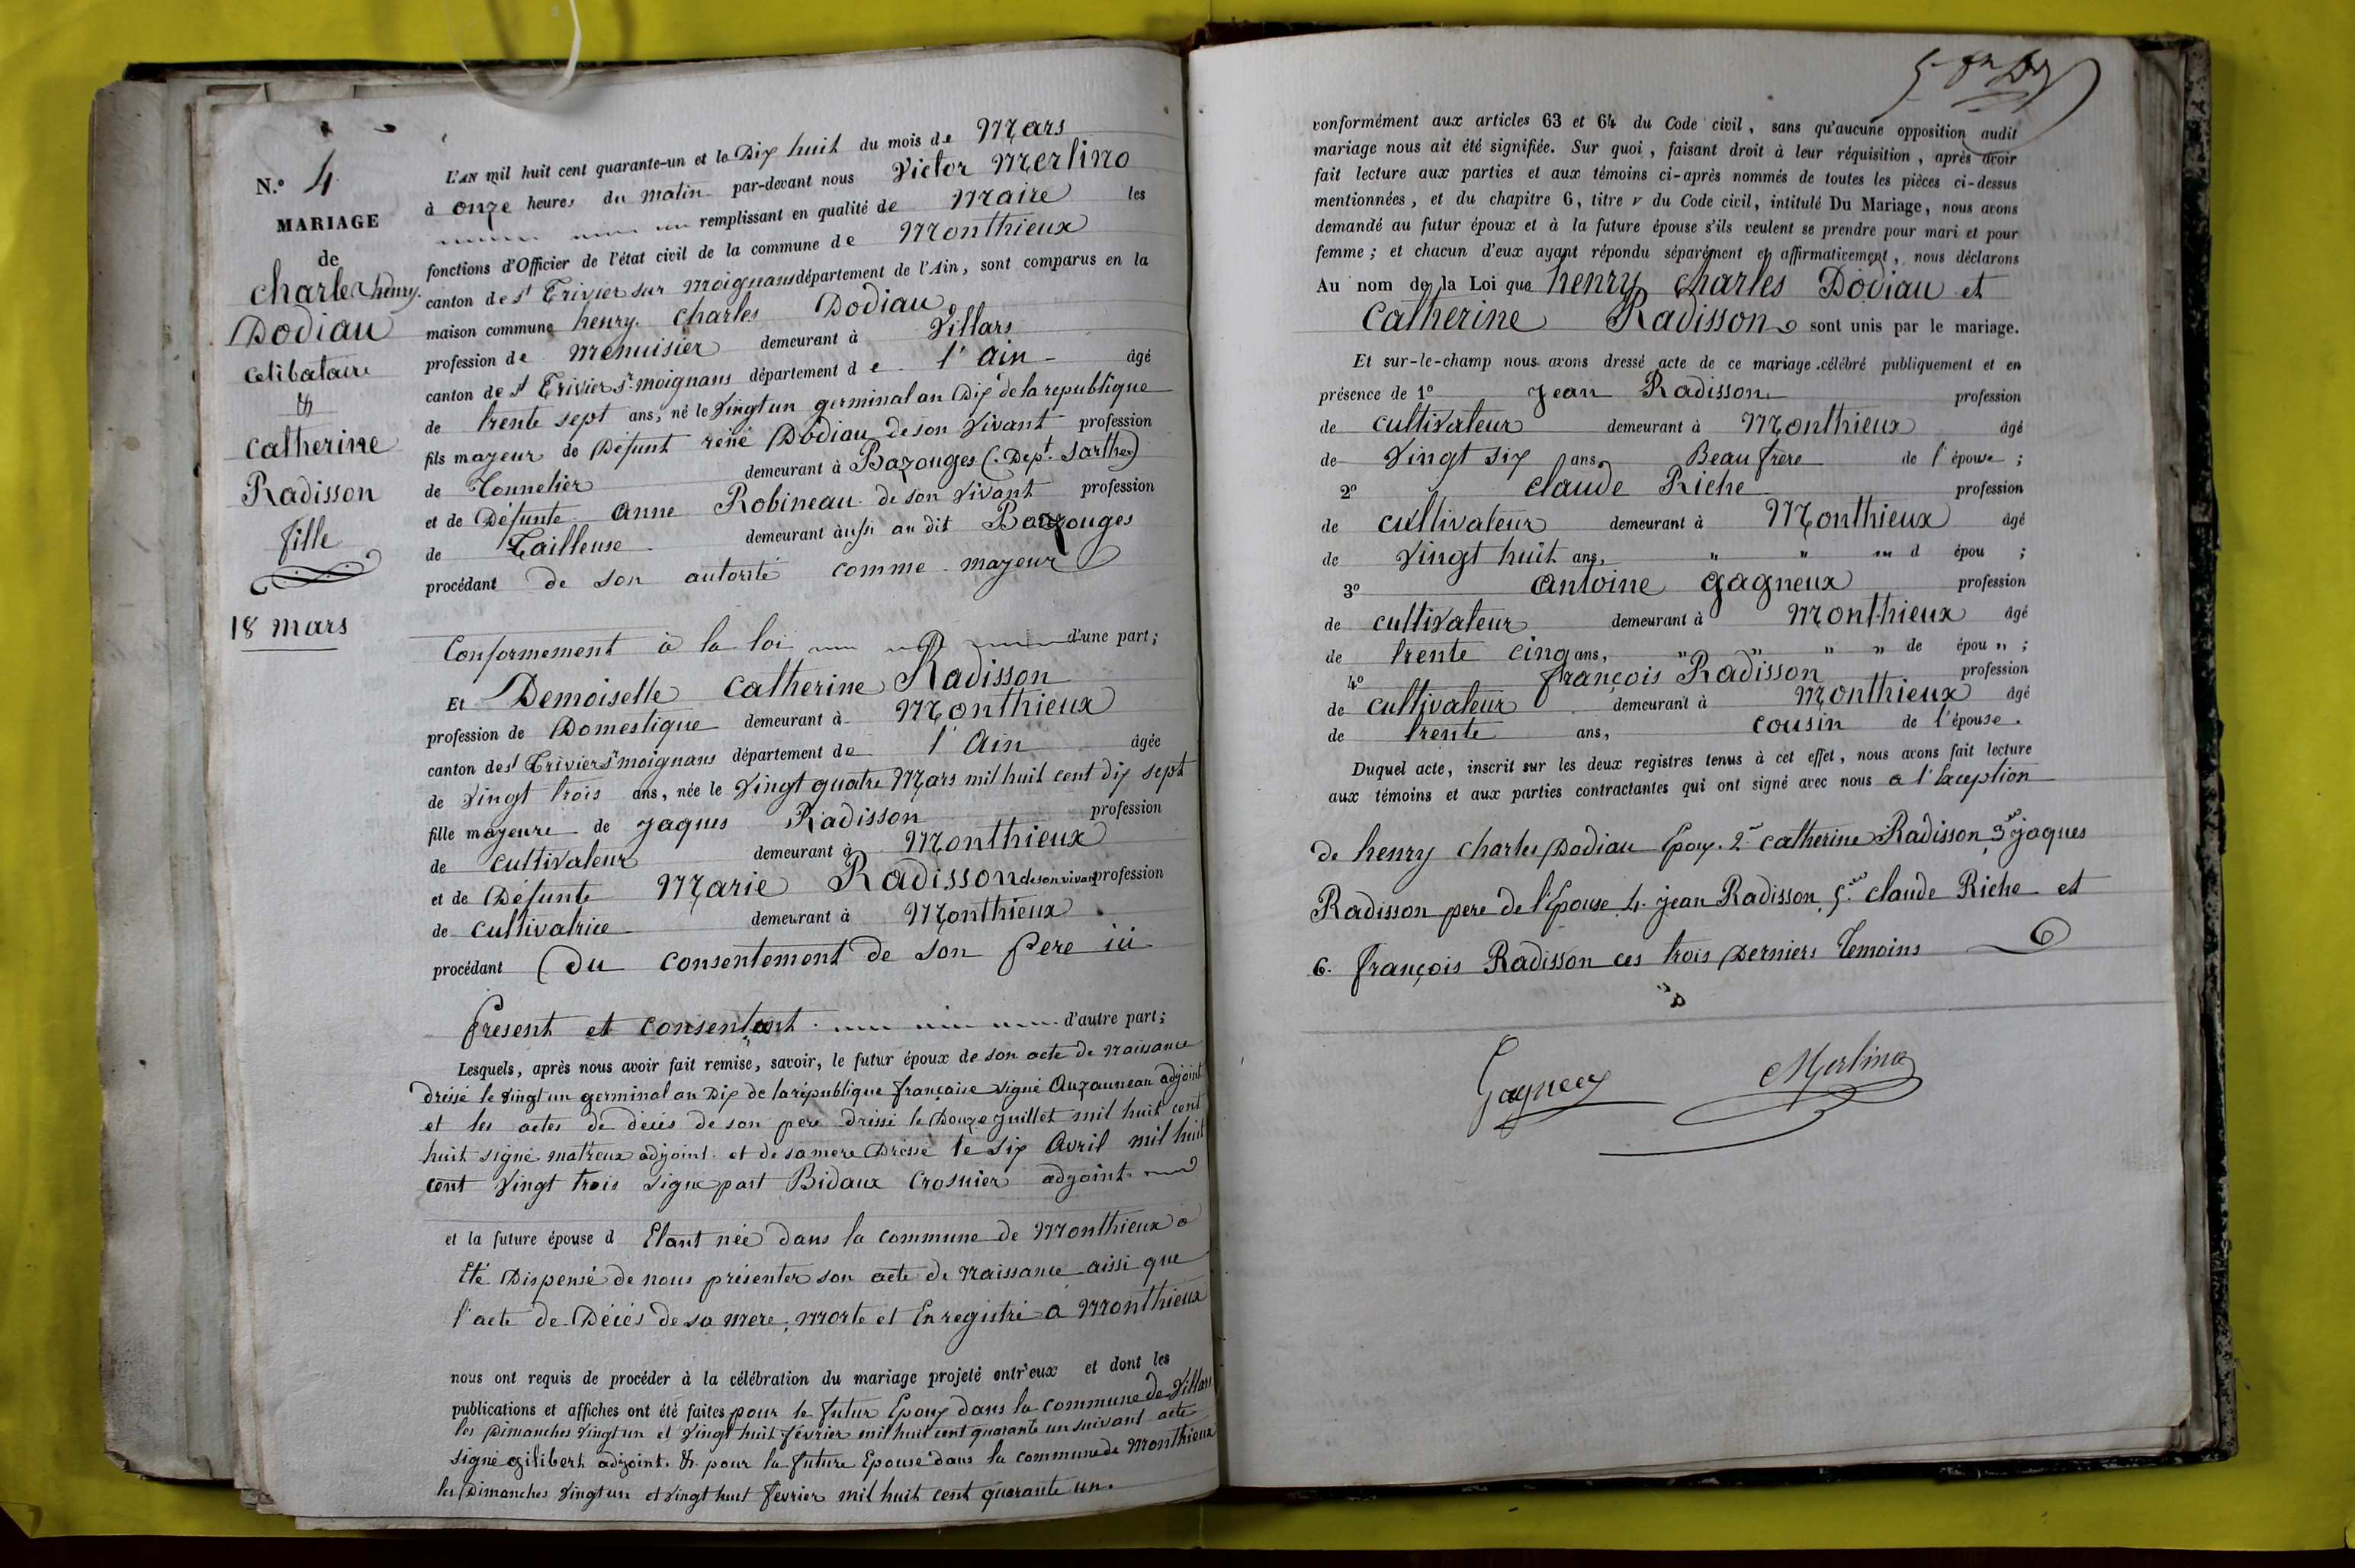 N.° 4
MARIAGE
de
Charles henry.
Dodiau
Celibataire
&
Catherine
Radisson
fille
18 mars
L'AN mil huit cent quarante-un et le Dix huit du mois de Mars
à onze heures du matin par-devant nous Victor Merlino
remplissant en qualité de Maire les
fonctions d'Officier de l'état civil de la commune de Monthieux
canton de st Trivier sur moignans département de l'Ain, sont comparus en la
maison commune henry. Charles Dodiau
profession de Menuisier demeurant à Villars
canton de st Trivier sr. moignans département de l'Ain âgé
de trente sept ans, né le Vingt un germinal an Dix de la republique
fils majeur de Défunt réné Dodiau de son Vivant profession
de Tonnelier demeurant à Bazouges (Dept. Sarthe)
et de Défunte Anne Robineau de son Vivant profession
de Tailleuse demeurant aussi au dit Bazouges
procédant de son autorité comme majeur
Conformement à la loi d'une part;
Et Demoiselle Catherine Radisson
profession de Domestique demeurant à Monthieux
canton de st Trivier sr moignans département de l'Ain âgée
de Vingt trois ans, née le Vingt quatre Mars mil huit cent dix sept
fille majeure de Jaques Radisson profession
de Cultivateur demeurant à Monthieux
et de Défunte Marie Radisson de son vivant profession
de Cultivatrice demeurant à Monthieux
procédant Du Consentement de Son Pere ici
Présent et Consentant d'autre part;
Lesquels, après nous avoir fait remise, savoir, le futur époux de son acte de Naissance
dréssé le Vingt un germinal an Dix de la république française signé Auzanneau adjoint
et les actes de décés de son pere dréssé le Douze Juillet mil huit cent
huit signé matreux adjoint et de sa mere Dréssé le Six Avril mil huit
cent Vingt trois signé part Bidaux Crosnier adjoint
et la future épouse d Etant née dans la Commune de Monthieux a
Eté Dispensé de nous présenter son acte de Naissance aissi que
l'acte de Décés de sa Mere, Morte et Enregistré à Monthieux
nous ont requis de procéder à la célébration du mariage projeté entr'eux et dont les
publications et affiches ont été faites pour le futur Epoux dans la Commune de Villars
les Dimanches Vingt un et Vingt huit février mil huit cent quarante un suivant acte
signé gilibert adjoint. & pour la future Epouse dans la Commune de Monthieux
les Dimanches Vingt un et Vingt huit février mil huit cent quarante un.
conformément aux articles 63 et 64 du Code civil, sans qu'aucune opposition audit
mariage nous ait été signifiée. Sur quoi, faisant droit à leur réquisition, après avoir
fait lecture aux parties et aux témoins ci-après nommés de toutes les pièces ci-dessus
mentionnées, et du chapitre 6, titre v du Code civil, intitulé Du Mariage, nous avons
demandé au futur époux et à la future épouse s'ils veulent se prendre pour mari et pour
femme; et chacun d'eux ayant répondu séparément et affirmativement, nous déclarons
Au nom de la Loi que henry Charles Dodiau et
Catherine Radisson sont unis par le mariage.
Et sur-le-champ nous avons dressé acte de ce mariage célébré publiquement et en
présence de 1° Jean Radisson profession
de Cultivateur demeurant à Monthieux âgé
de Vingt six ans, Beau frère de l'épouse;
2° Claude Riche profession
de Cultivateur demeurant à Monthieux âgé
de Vingt huit ans, " " " d épou ;
3° Antoine Gagneux profession
de Cultivateur demeurant à Monthieux âgé
de trente cinq ans, " " " " de épou " ;
4° François Radisson profession
de Cultivateur demeurant à Monthieux âgé
de trente ans, Cousin de l'épouse.
Duquel acte, inscrit sur les deux registres tenus à cet effet, nous avons fait lecture
aux témoins et aux parties contractantes qui ont signé avec nous a l'Exception
de henry Charles Dodiau Epoux. 2 Catherine Radisson, 3 Jaques
Radisson pere de l'Epouse 4. Jean Radisson, 5. Claude Riche et
6. François Radisson ces trois Derniers Temoins
Gagneux
Merlino